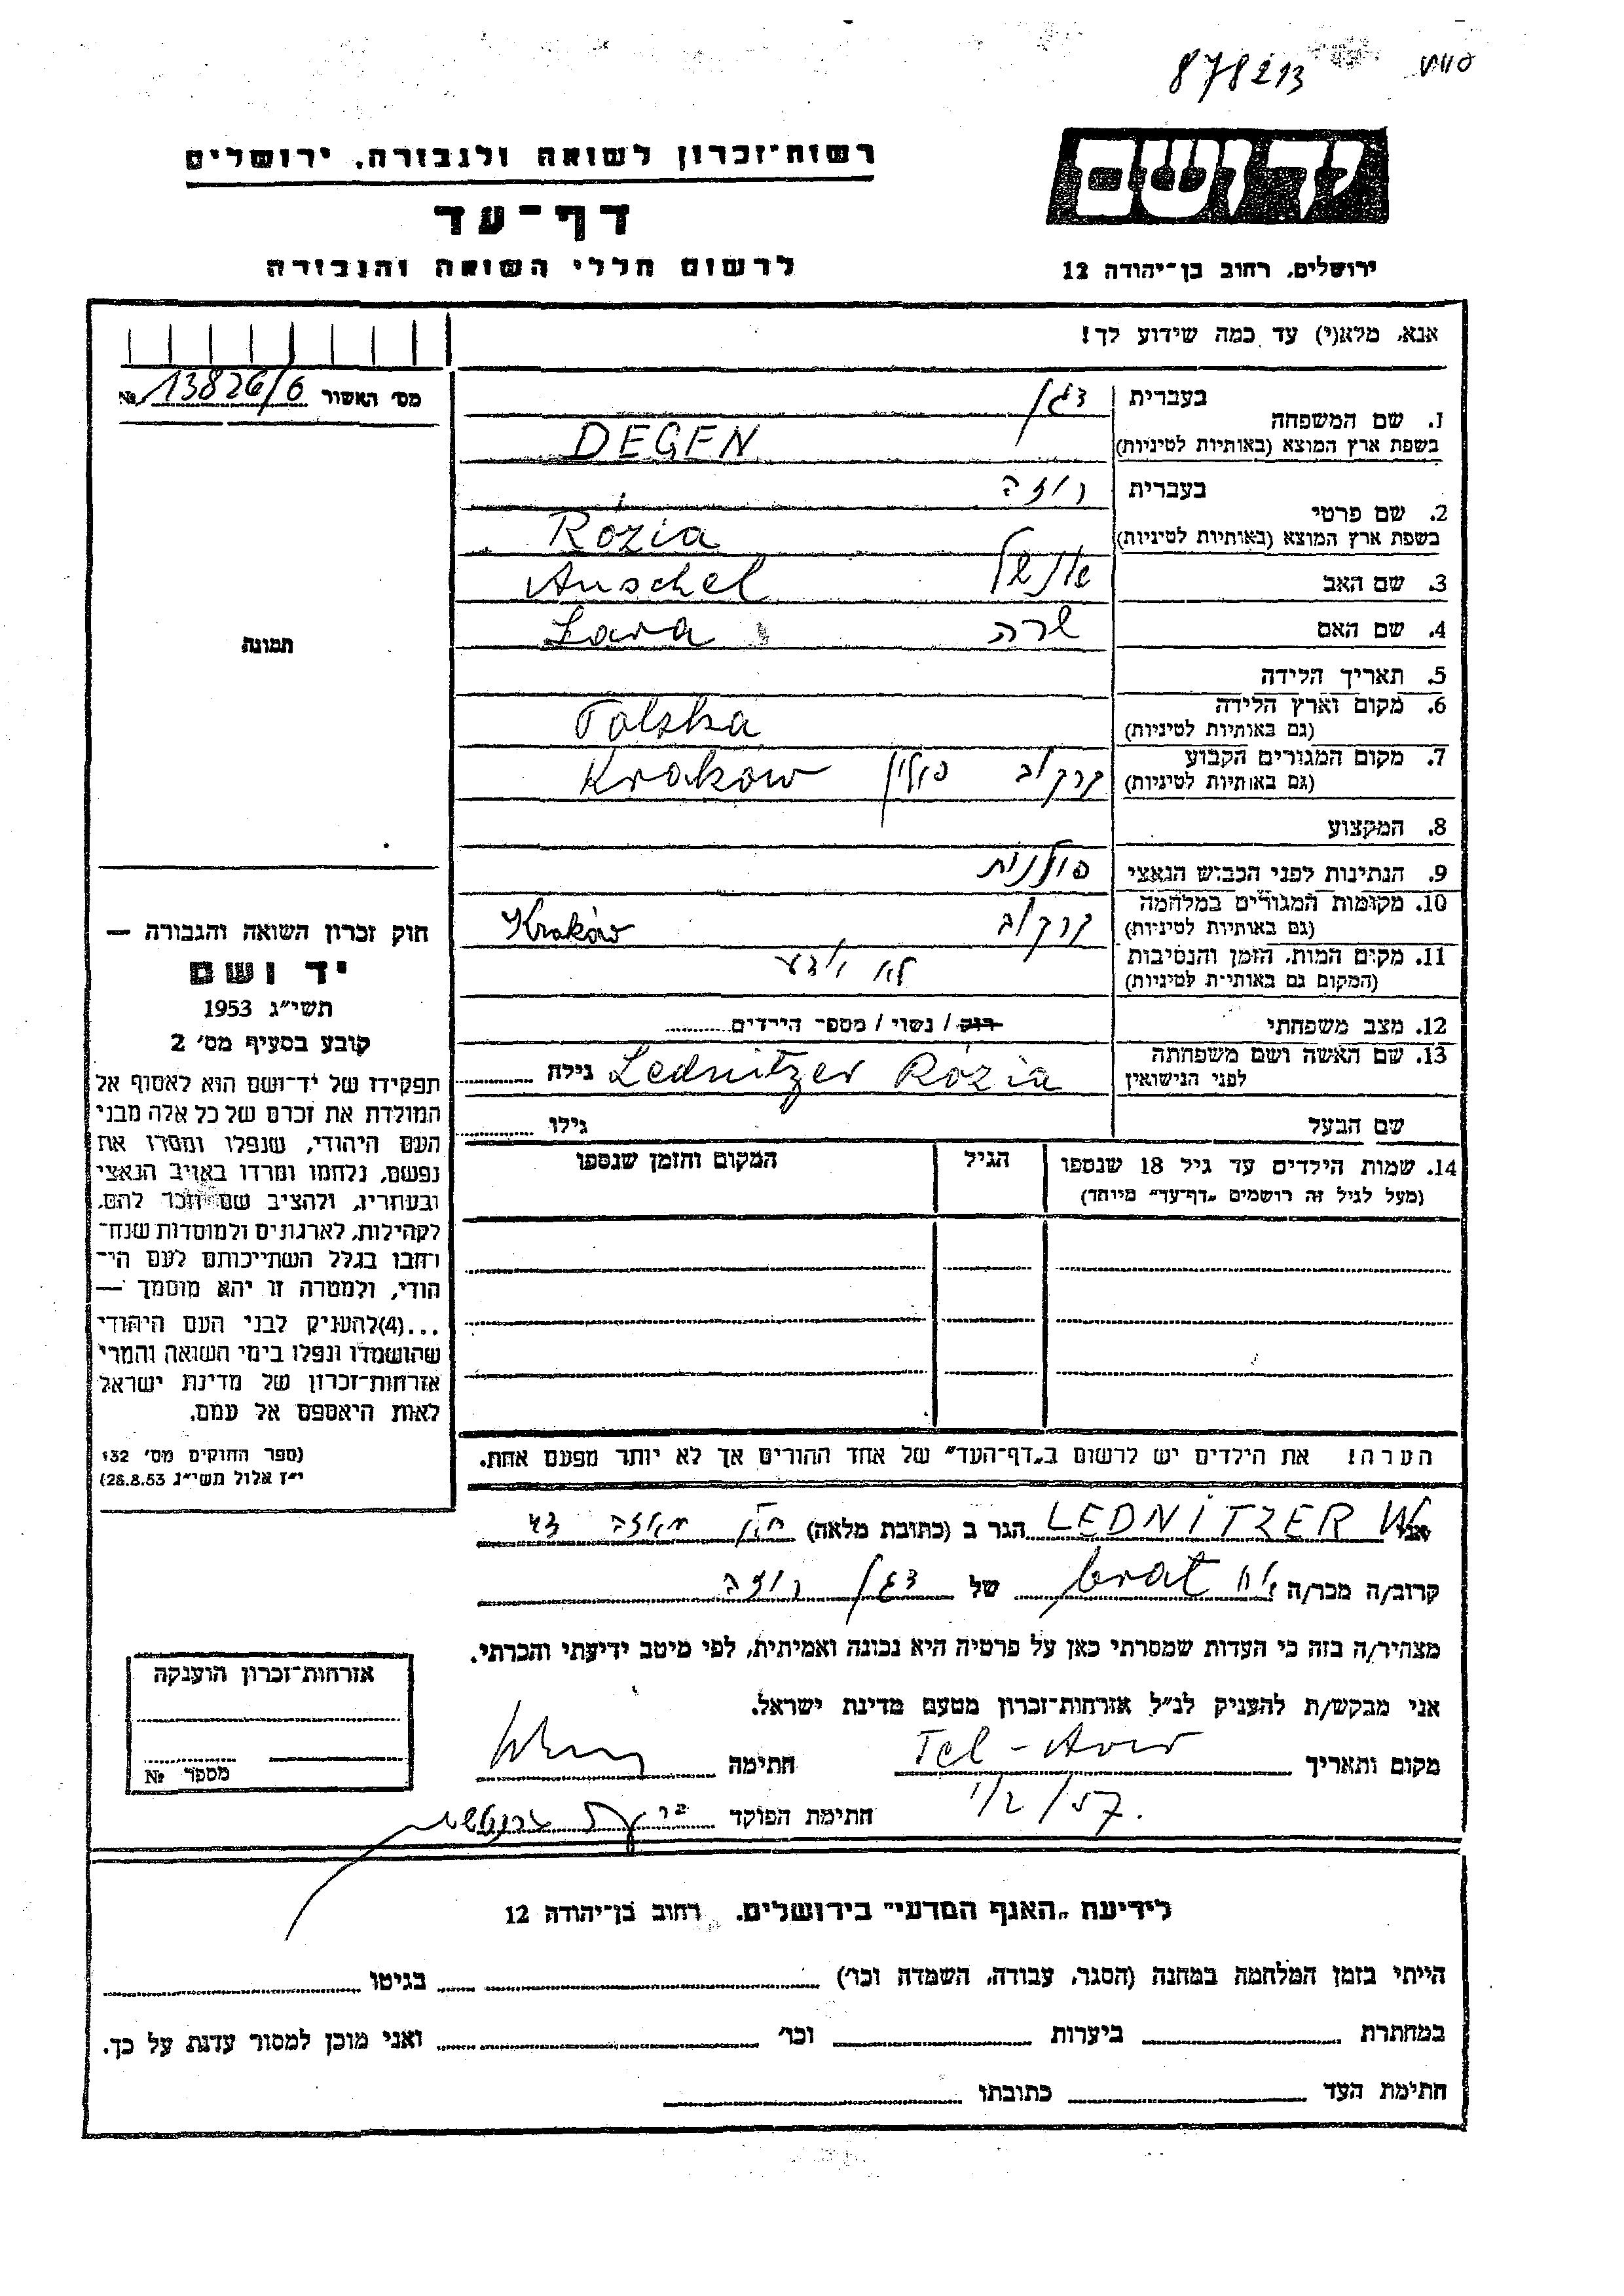 878213
רשות־זכרון לשואה ולגבורה, ירושלים
דף־עד
לרשום חללי השואה והגבורה
יד ושם
ירושלים, רחוב בן־יהודה 12
אנא, מלא(י) עד כמה שידוע לך!
מס׳ האשור 13826/6 №
1. שם המשפחה
בעברית דגן
בשפת ארץ המוצא (באותיות לטיניות) DEGEN
2. שם פרטי
בעברית רוזה
בשפת ארץ המוצא (באותיות לטיניות) Rózia
3. שם האב אנשל Anschel
4. שם האם שרה Sara
5. תאריך הלידה
6. מקום וארץ הלידה
(גם באותיות לטיניות) Polska
7. מקום המגורים הקבוע
(גם באותיות לטיניות) קרקוב פולין Krakow
8. המקצוע
9. הנתינות לפני הכבוש הנאצי פולנית
10. מקומות המגורים במלחמה
(גם באותיות לטיניות) קרקוב Kraków
11. מקום המות, הזמן והנסיבות
(המקום גם באותיות לטיניות) לא ידוע
12. מצב משפחתי רוק / נשוי / מספר הילדים
13. שם האשה ושם משפחתה
לפני הנישואין Lednitzer Rózia גילה
שם הבעל גילו
14. שמות הילדים עד גיל 18 שנספו הגיל המקום והזמן שנספו
(מעל לגיל זה רושמים „דף־עד” מיוחד)
תמונה
חוק זכרון השואה והגבורה —
יד ושם
תשי״ג 1953
קובע בסעיף מס׳ 2
תפקידו של יד־ושם הוא לאסוף אל
המולדת את זכרם של כל אלה מבני
העם היהודי, שנפלו ומסרו את
נפשם, נלחמו ומרדו באויב הנאצי
ובעוזריו, ולהציב שם וזכר להם,
לקהילות, לארגונים ולמוסדות שנח־
רבו בגלל השתייכותם לעם הי־
הודי, ולמטרה זו יהא מוסמך —
...(4)להעניק לבני העם היהודי
שהושמדו ונפלו בימי השואה והמרי
אזרחות־זכרון של מדינת ישראל
לאות היאספם אל עמם.
(ספר החוקים מס׳ 132,
י״ז אלול תשי״ג 28.8.53)
הערה: את הילדים יש לרשום ב„דף־העד” של אחד ההורים אך לא יותר מפעם אחת.
אני LEDNITZER W הגר ב (כתובת מלאה) 43
קרוב/ה מכר/ה אח brat של דגן רוזה
מצהיר/ה בזה כי העדות שמסרתי כאן על פרטיה היא נכונה ואמיתית, לפי מיטב ידיעתי והכרתי.
אני מבקש/ת להעניק לנ״ל אזרחות־זכרון מטעם מדינת ישראל.
מקום ותאריך Tel-Aviv חתימה
1/2/57.
חתימת הפוקד
אזרחות־זכרון הוענקה
מספר №
לידיעת „האגף המדעי” בירושלים. רחוב בן־יהודה 12
הייתי בזמן המלחמה במחנה (הסגר, עבודה, השמדה וכו׳) בגיטו
במחתרת ביערות וכו׳ ואני מוכן למסור עדות על כך.
חתימת העד כתובתו